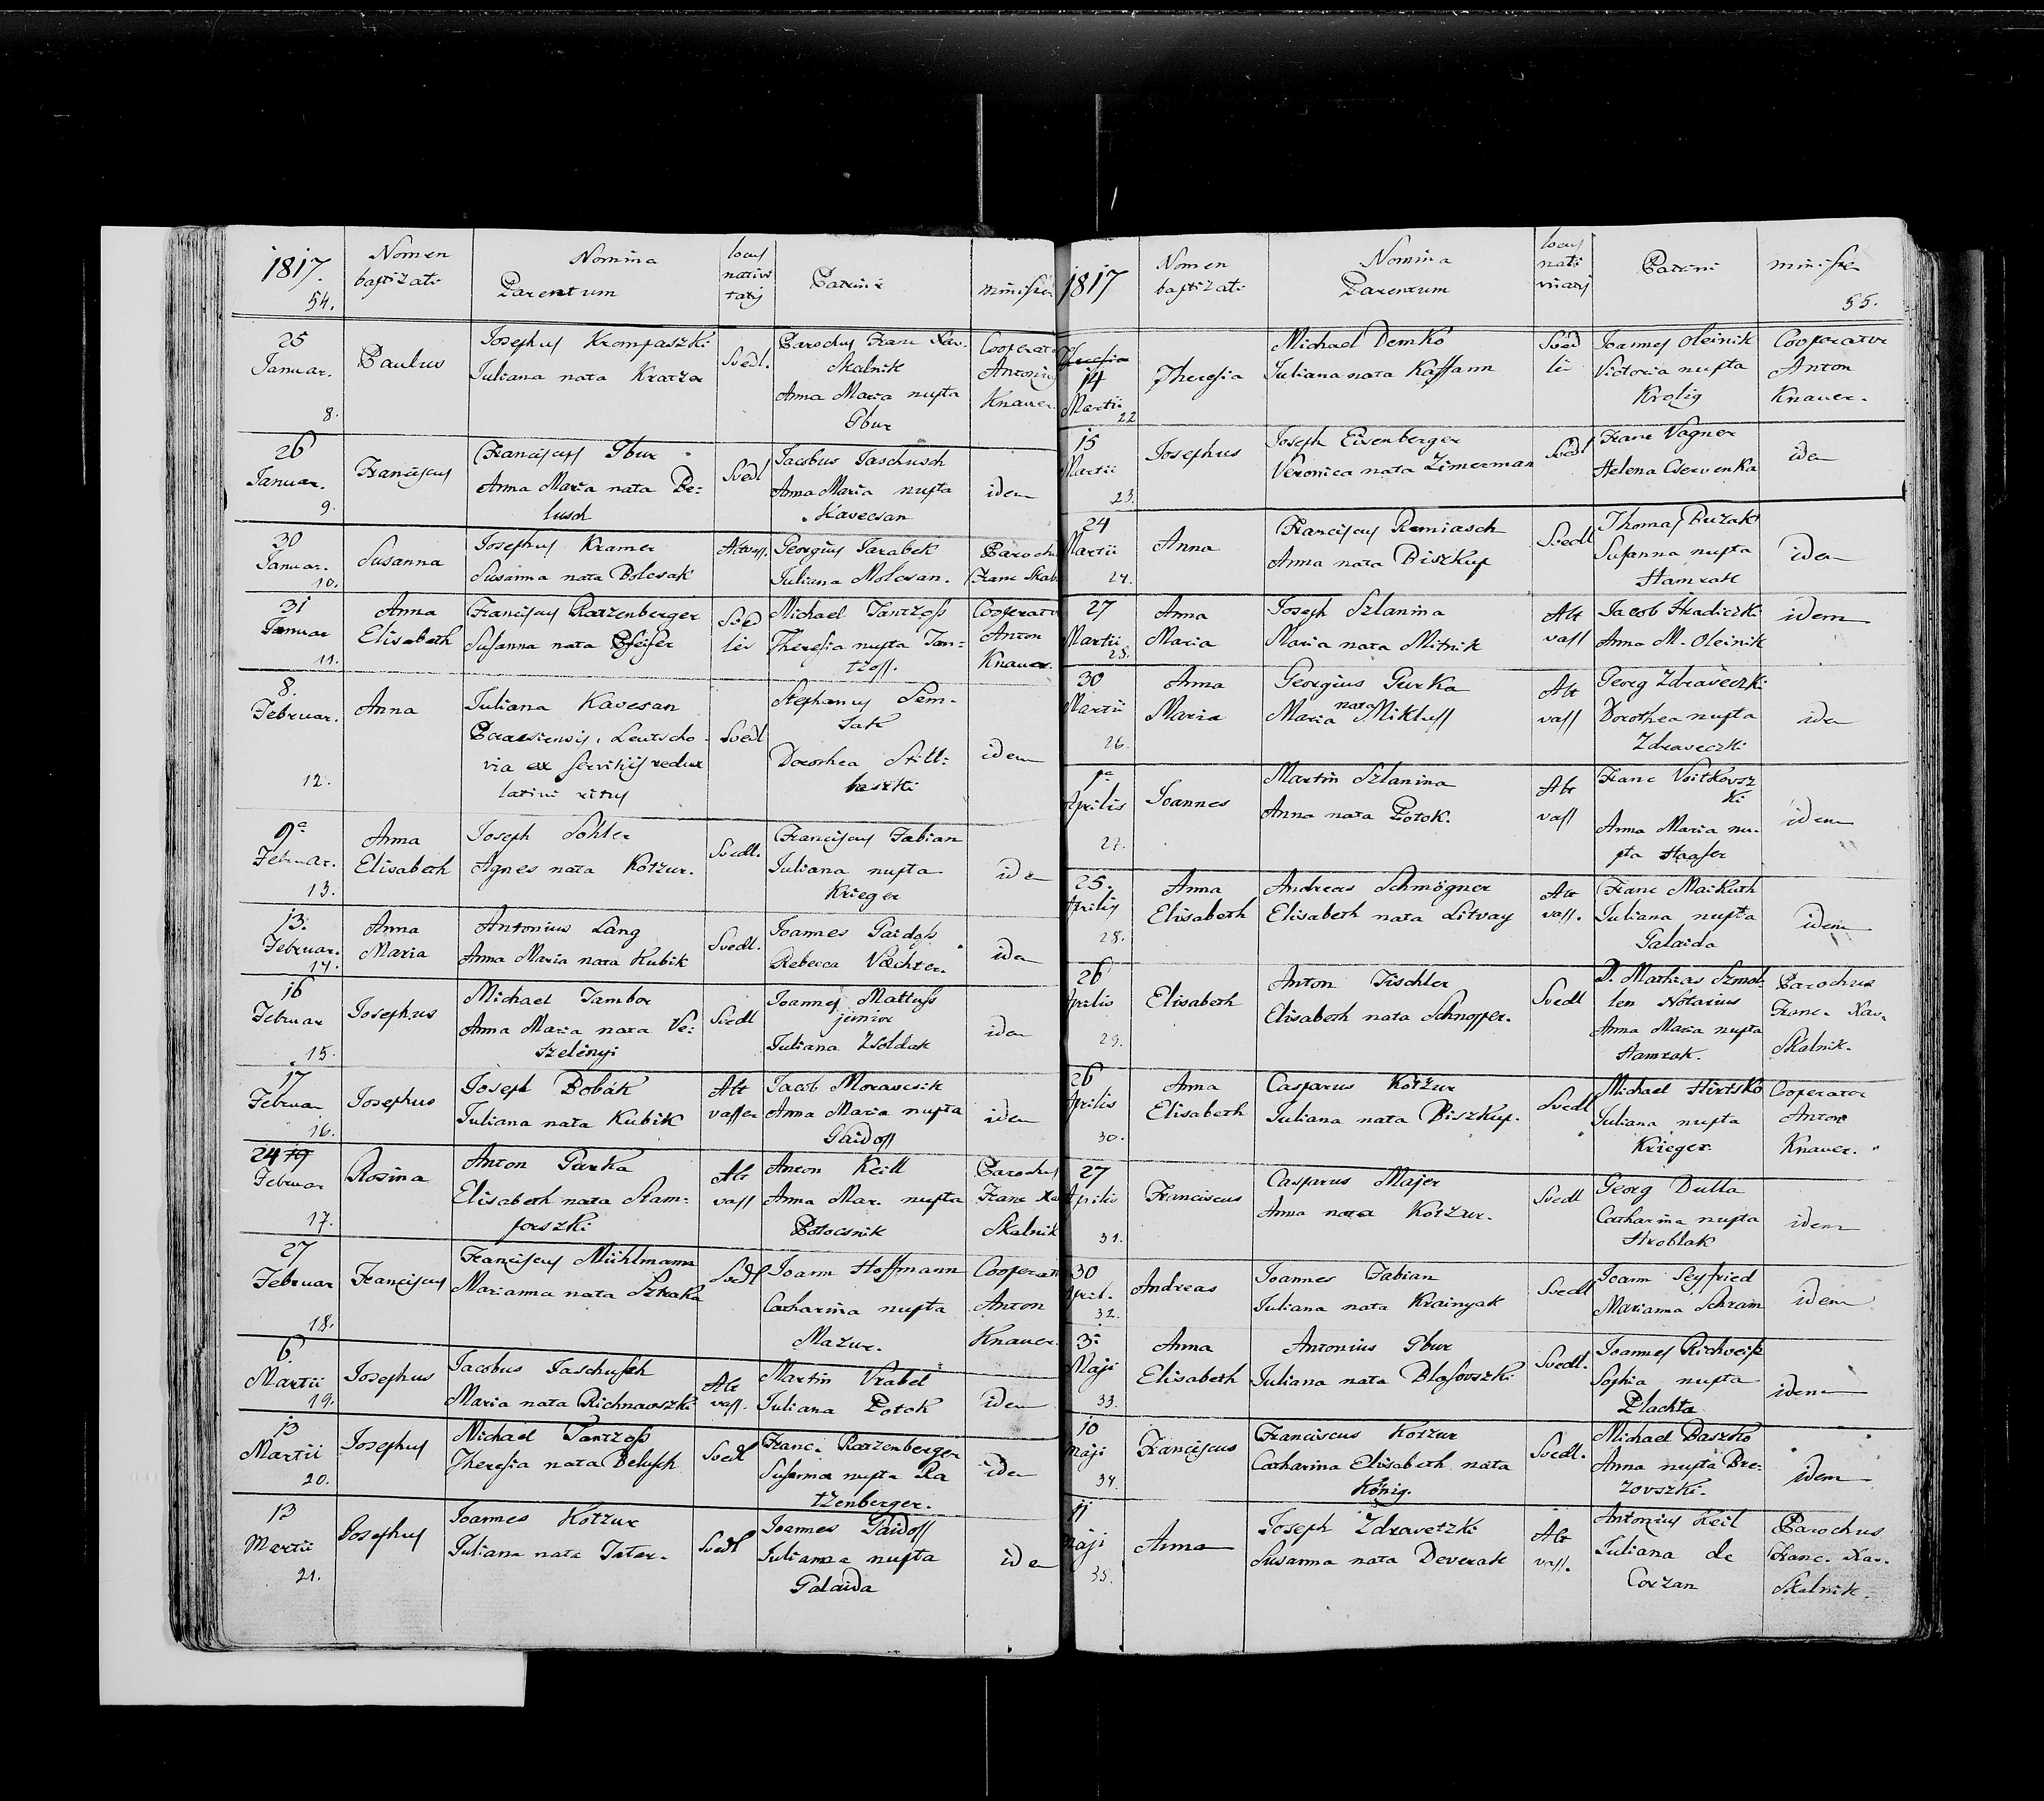 1817.
54.
Nomen
baptizati
Nomina
Parentum
locus
nativi
tatis
Patrini
minister
25
Januar.
8.
Paulus
Josephus Krompaszki
Juliana nata Kratzer
Svedl.
Parochus Franc Xav.
Skalnik
Anna Maria nupta
Gbur
Cooperator
Antonius
Knauer.
26
Januar.
9.
Franciscus
Franciscus Gbur
Anna Maria nata Be-
lusch
Svedl
Jacobus Taschusch
Anna Maria nupta
Kavecsan
idem
30
Januar.
10.
Susanna
Josephus Kramer
Susanna nata Bolcsak
Altvass.
Georgius Jarabek
Juliana Molcsan.
Parochus
Franc Skal.
31
Januar
11.
Anna
Elisabeth
Franciscus Ratzenberger
Susanna nata Pfeifer
Sved
ler
Michael Jantzoss
Theresia nupta Jan-
tzoss.
Cooperator
Anton
Knauer.
8.
Februar.
12.
Anna
Juliana Kavesan
Leutscho-
via ex servitiis redux
latini ritus
Svedl
Stephanus Sem-
sak
Dorothea Still-
haszki
idem
9a
Februar.
13.
Anna
Elisabeth
Joseph Sohler
Agnes nata Kotzur.
Svedl.
Franciscus Fabian
Juliana nupta
Krieger
idem
13.
Februar.
14.
Anna
Maria
Antonius Lang
Anna Maria nata Kubik
Svedl.
Joannes Gaidoss
Rebecca Vachter.
idem
16
Februar
15.
Josephus
Michael Tambor
Anna Maria nata Ve-
szelényi
Svedl
Joannes Mattuss
junior
Juliana Zsoldak
idem
17
Februar
16.
Josephus
Joseph Bobák
Juliana nata Kubik
Alt
vasser
Jacob Moravcsik
Anna Maria nupta
Gaidoss
idem
24 19
Februar
17.
Rosina
Anton Gurka
Elisabeth nata Stam-
forszki
Alt
vass
Anton Keill
Anna Mar. nupta
Potocsnik
Parochus
Franc Xa
Skalnik
27
Februar
18.
Franciscus
Franciscus Mühlmann
Marianna nata Sztraka
Svedl
Joann Hoffmann
Catharina nupta
Mazur.
Cooperator
Anton
Knauer.
6
Martii
19.
Josephus
Jacobus Taschusch
Maria nata Richnavszki
Alt
vass.
Martin Vrabel
Juliana Potok
idem
13
Martii
20.
Josephus
Michael Jantzoss
Theresia nata Belusch
Svedl
Franc. Ratzenberger
Susanna nupta Ra
tzenberger.
idem
13
Martii
21.
Josephus
Joannes Kotzur
Juliana nata Tatar.
Svedl
Joannes Gaidoss
Julianna nupta
Galaida
idem
1817
Nomen
baptizati
Nomina
Parentum
locus
nati
vitatis
Patrini
minister
55.
Theresia
14
Martii
22
Theresia
Michael Demko
Juliana nata Kassann
Sved
ler
Joannes Oleinik
Victoria nupta
Krolig
Cooperator
Anton
Knauer.
15
Martii
23.
Josephus
Joseph Eisenberger
Veronica nata Zimerman
Svedl
Franc Vagner
Helena Cservenka
idem
24
Martii
24.
Anna
Franciscus Remiasch
Anna nata Biszkup
Svedl
Thomas Buzak
Susanna nupta
Hamrak
idem
27
Martii
25.
Anna
Maria
Joseph Szlanina
Maria nata Mitnik
Alt
vass
Jacob Hradiczki
Anna M. Oleinik
idem
30
Martii
26.
Anna
Maria
Georgius Gurka
Maria nata Mikluss
Alt
vass
Georg Zdraveczki
Dorothea nupta
Zdraveczki
idem
1a
Aprilis
27.
Joannes
Martin Szlanina
Anna nata Potok.
Alt
vass
Franc Voitkovsz
ki
Anna Maria nu-
pta Haaser
idem
25.
Aprilis
28.
Anna
Elisabeth
Andreas Schmögner
Elisabeth nata Litvay
Alt
vass.
Franc Maikuth
Juliana nupta
Galaida
idem
26
Aprilis
29.
Elisabeth
Anton Tischler
Elisabeth nata Schnopper.
Svedl
D. Mathias Szmol-
len Notarius
Anna Maria nupta
Hamrak.
Parochus
Franc. Xav.
Skalnik.
26
Aprilis
30.
Anna
Elisabeth
Casparus Kotzur
Juliana nata Biszkup.
Svedl
Michael Hirtsko
Juliana nupta
Krieger.
Cooperator
Anton
Knauer.
27
Aprilis
31.
Franciscus
Casparus Majer
Anna nata Kotzur.
Svedl
Georg Dulla
Catharina nupta
Hroblak
idem
30
April.
32.
Andreas
Joannes Fabian
Juliana nata Krainyak
Svedl
Joann Seyfried
Marianna Schram
idem
3a
Maji
33.
Anna
Elisabeth
Antonius Gbur
Juliana nata Blasovszki
Svedl.
Joannes Richveisz
Sophia nupta
Plachta
idem
10
Maji
34.
Franciscus
Franciscus Kotzur
Catharina Elisabeth nata
König.
Svedl.
Michael Baszko
Anna nupta Bre-
zovszki.
idem
11
Maji
35.
Anna
Joseph Zdravetzki
Susanna nata Deverak
Alt
vass.
Antonius Keil
Juliana de
Corzan
Parochus
Franc. Xav.
Skalnik.